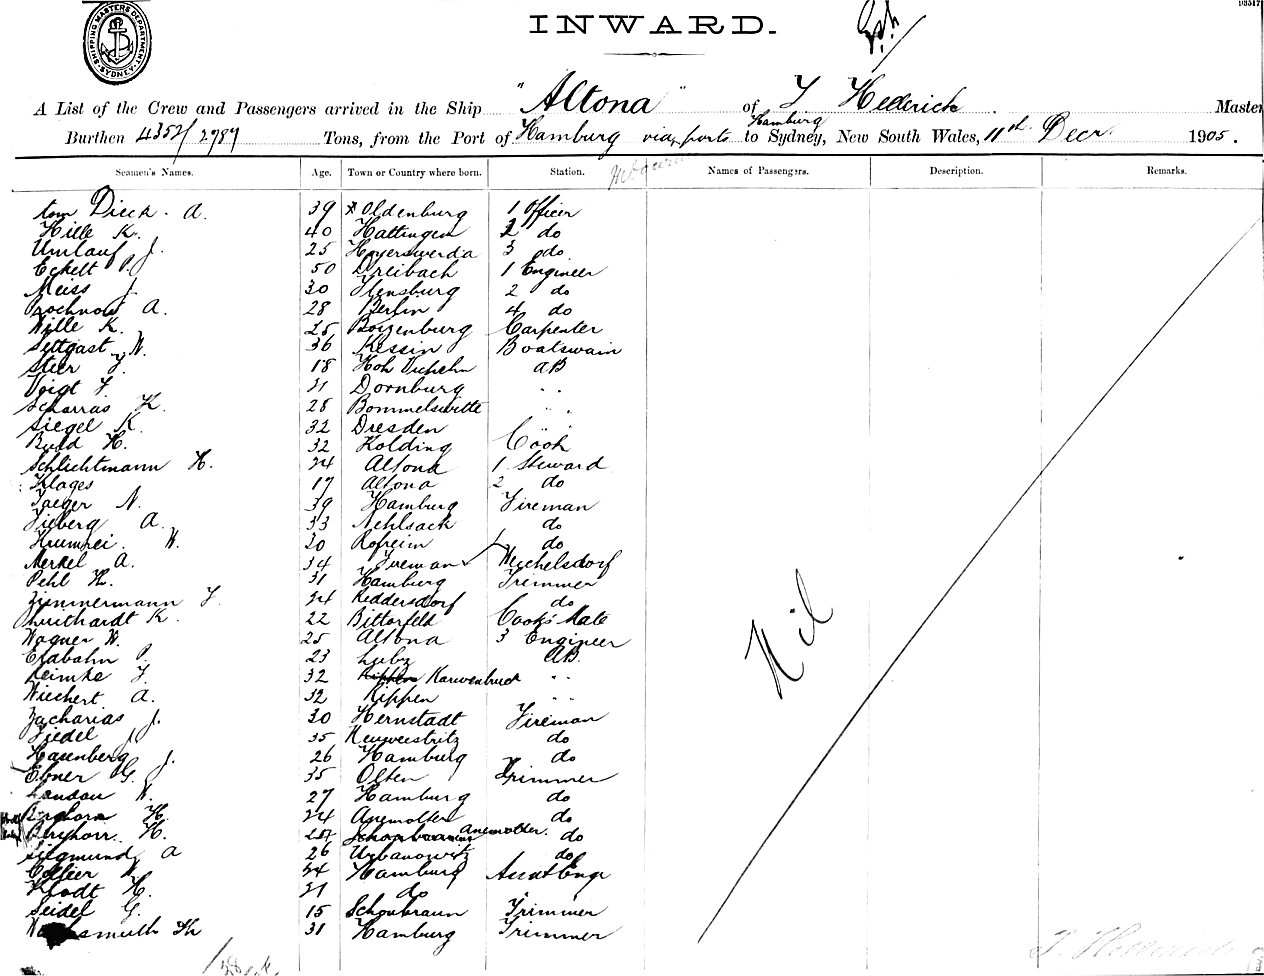 INWARD.
SHIPPING MASTERS DEPARTMENT SYDNEY
A List of the Crew and Passengers arrived in the Ship "Altona" of Hederich Master
Burthen 4352/2789 Tons, from the Port of Hamburg via ports to Sydney, New South Wales, 11th Decr 1905.
Hamburg
Seamen's Names. Age. Town or Country where born. Station. Names of Passengers. Description. Remarks.
tom Dieck. A. 39 Oldenburg 1 Officer
Hille K. 40 Hattingen 2 do
Umlauf J. 25 Hoyerswerda 3 do.
Eckelt P. 50 Dreibach 1 Engineer
Meiss J. 30 Flensburg 2 do
Prochnow A. 28 Berlin 4 do
Wille K. 25 Boizenburg Carpenter
Settgast W. 36 Kessin Boatswain
Steer F. 18 Hoh AB
Voigt F. 21 Dornburg " "
Scharras K. 28 Bommelsvitte " "
Siegel K. 32 Dresden " "
Buld H. 32 Kolding Cook
Schlichtmann H. 24 Altona 1 Steward
Klages 17 Altona 2 do
Jaeger N. 39 Hamburg Fireman
Fieberg A. 33 Mehlsack do
Krumrei. W. 30 do
Merkel A. 34 Fireman Weichelsdorf
Pehl H. 31 Hamburg Trimmer
Zimmermann F. 24 Reddersdorf do
Luithardt K. 22 Bitterfeld Cook's Mate
Wagner W. 25 Altona 3 Engineer
P. 23 Lubz AB.
Reimke F. 32 Karwenbruch " "
Wiechert A. 32 Kippen " "
Zacharias J. 30 Hernstadt Fireman
Fiedel J. 35 Neuweistritz do
Hasenberg J. 26 Hamburg do
Ebner G. 35 Olten Trimmer
Landau W. 27 Hamburg do
Berghorn H. 24 Anemolter do
Berghorn. H. 24 Anemolter. do
Siegmund A 26 Urbanowitz do
W. 24 Hamburg Asst Engr
Klodt H. 21 do
Seidel G. 15 Schonbraun Trimmer
31 Hamburg Trimmer
Nil